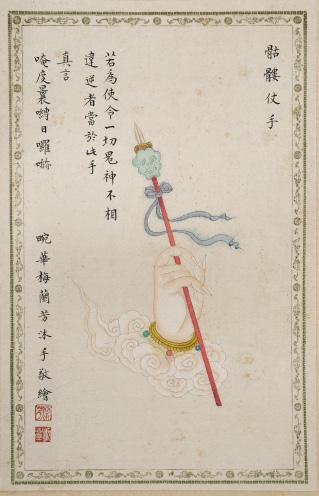 骷髏仗手
若為使令一切鬼神不相
違逆者當於此手
真言
唵度曩嚩日囉嚇
畹華梅蘭芳沐手敬繪